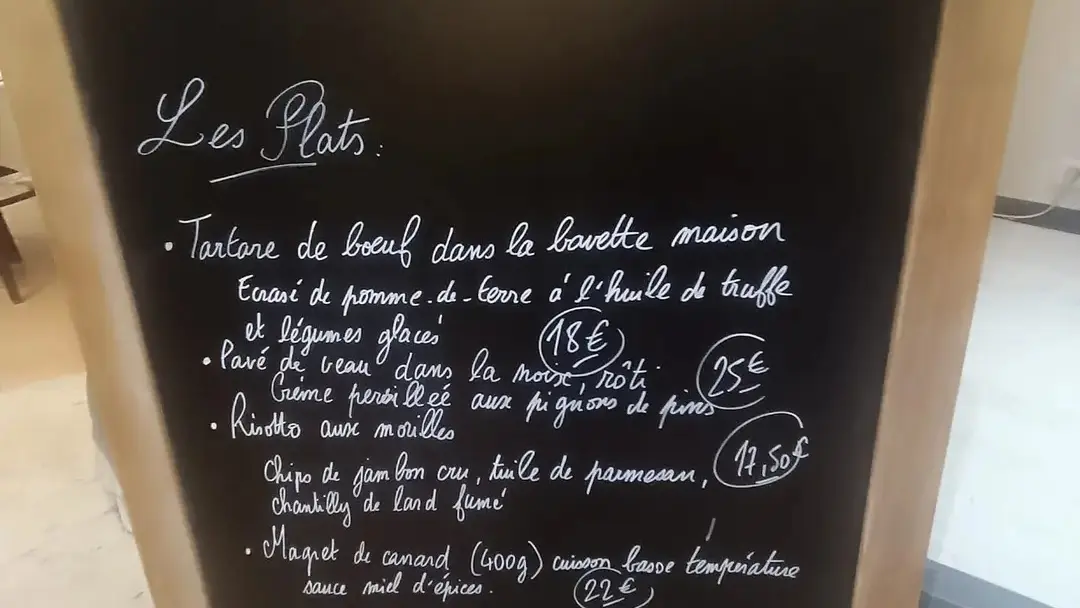 Les Plats:
• Tartare de bœuf dans la bavette maison
Ecrasé de pomme-de-terre à l'huile de truffe
et légumes glacés 18€
• Pavé de veau dans la noix, rôti 25€
Crème persillée aux pignons de pins
• Risotto aux morilles
Chips de jambon cru, tuile de parmesan, 17,50€
chantilly de lard fumé
• Magret de canard (400g) cuisson basse température
sauce miel d'épices. 22€